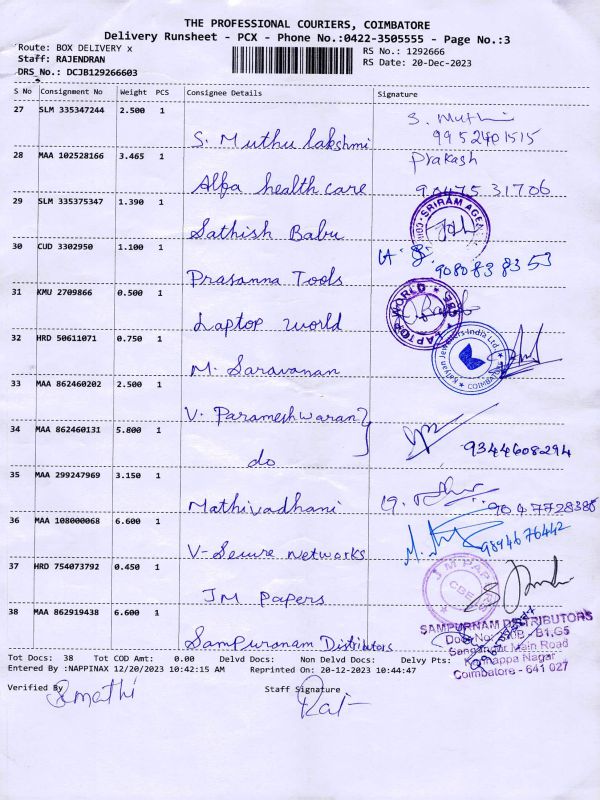 THE PROFESSIONAL COURIERS, COIMBATORE
Delivery Runsheet - PCX - Phone No.:0422-3505555 - Page No.:3
Route: BOX DELIVERY x
RS No.: 1292666
Staff: RAJENDRAN
RS Date: 20-Dec-2023
DRS_No.: DCJB129266603
S No Consignment No Weight PCS Consignee Details Signature
27 SLM 335347244 2.500 1
S. Muthu lakshmi
S. Muthu
9952401515
28 MAA 102528166 3.465 1
Prakash
Alfa health care
90475 31706
29 SLM 335375347 1.390 1
SRIRAM AGEN
Sathish Babu
30 CUD 3302950 1.100 1
9080838353
Prasanna Tools
31 KMU 2709866 0.500 1
LAPTOP WORLD
Laptop world
32 HRD 50611071 0.750 1
Kalyan Jewellers India Ltd.
COIMBATORE
M. Saravanan
33 MAA 862460202 2.500 1
V. Parameshwaran
34 MAA 862460131 5.800 1
9344608294
do
35 MAA 299247969 3.150 1
Mathivadhani
9047728386
36 MAA 108000068 6.600 1
9894676442
V-Secure networks
37 HRD 754073792 0.450 1
JM PAPERS
CBE
JM Papers
38 MAA 862919438 6.600 1
Sampuranam Distributors
SAMPURNAM DISTRIBUTORS
Door No: B1,G5
Sanganoor Main Road
Kannappa Nagar
Coimbatore - 641 027
Tot Docs: 38 Tot COD Amt: 0.00 Delvd Docs: Non Delvd Docs: Delvy Pts:
Entered By :NAPPINAX 12/20/2023 10:42:15 AM Reprinted On: 20-12-2023 10:44:47
Verified By Staff Signature
Smathi
Raj